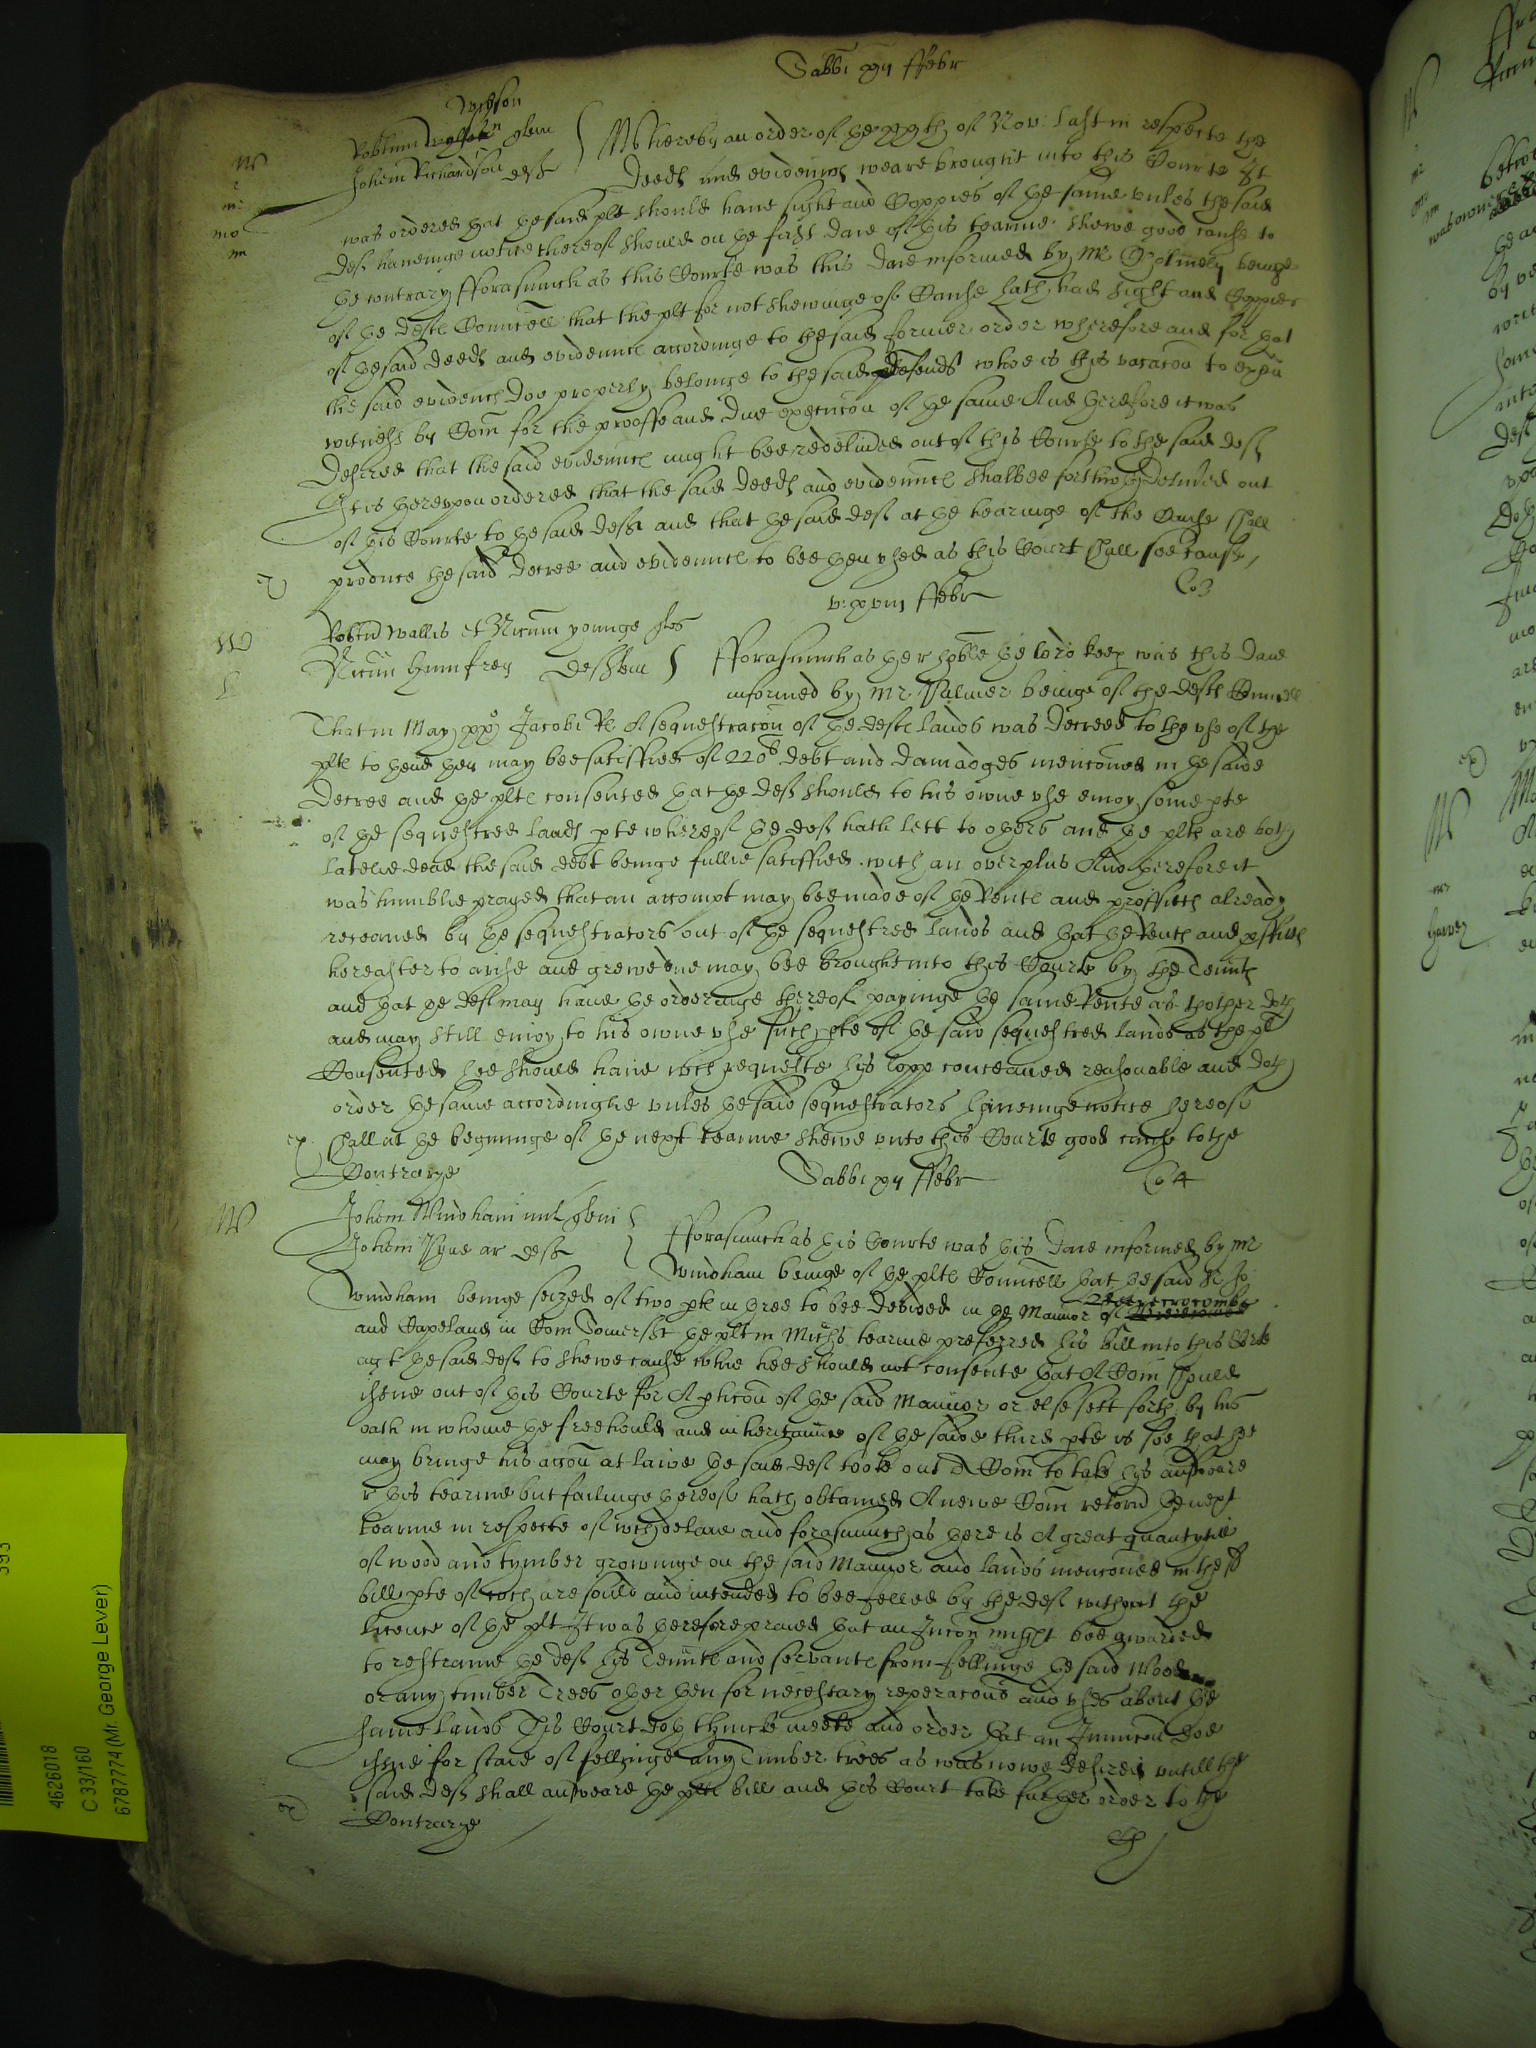 Sabbi xij ffebr
Robtum quer
Johem Richardson def
Whereby an order of the xxxth of Nov: last in respecte the
deeds and evidences weare brought into this Courte It
was ordered that the said plt should have sight and Coppies of the same unles the said
def haveinge notice thereof should on the first daie of this tearme shewe good cause to
the contrary fforasmuch as this Courte was this daie informed by Mr beinge
of the defts Councell that the plt for not shewinge of Cause hath had sight and Coppies
of the said deeds and evidence accordinge to the said former order wherefore and for that
the said evidences doe properly belonge to the said defend whoe is this vacacon to
witnesses by Com for the prooffe and due execucon of the same And therefore it was
desired that the said evidence might bee redelivred out of this Courte to the said def
It is hereupon ordered that the said deeds and evidence shalbee forthwith delivred out
of this Courte to the said deft and that the said def at the hearinge of the Cause shall
produce the said decree and evidence to bee then used as this Court shall see cause
Co 3
v: xviij ffebr
Robtu Wallis et Nicum younge quer
Nicum Humfrey deft
fforasmuch as the r hoble the lord keep was this daie
informed by Mr Palmer beinge of the defts Councell
That in May xxj Jacobi R A sequestracon of the defts lands was decreed to the use of the
plts to thend they may bee satisfied of 220 debt and damadges mencioned in the saide
decree and the plts consented that the def should to his owne use enioy some pte
of the sequestred lands pte whereof the def hath lett to others and the plts are both
latelie dead the said debt beinge fullie satisfied with an overplus And therefore it
was humblie prayed that an accompt may bee made of the Rents and proffitts already
receaved by the sequestrators out of the sequestred lands and that the Rents and pffitts
hereafter to arise and growe due may bee brought into this Courte by the Tennts
and that the def may have the orderinge thereof payinge the same Rente as thother doth
and may still enioy to his owne use such pte of the said sequestred lands as the plt
Consented hee should have wch requeste his lopp conceaved reasonable and doth
order the same accordinglie unles the said sequestrators haveinge notice hereof
shall at the begininge of the next tearme shewe unto this Courte good cause to the
Contrarye
Sabbi xij ffebr
Co 4
Johem Windham mil quer
Johem Pyne ar deft
fforasmuch as this Courte was this daie informed by Mr
Windham beinge of the plts Councell that the said Sr Jo
Windham beinge seized of two pts in three to bee devided in the Mannor of
and Capeland in Com Somerset the plt in Michs tearme preferred his bill into this Corte
agt the said def to shewe cause whie hee should not consente that A Com should
issue out of this Courte for A pticon of the said Mannor or else sett forth by his
oath in whome the freehould and inheritannce of the saide third pte is soe that hee
may bringe his accon at lawe the said def tooke out A Com to take his answeare
this tearme but failinge thereof hath obtained A newe Com retord the next
tearme in respecte of wch delaie and forasmuch as there is A great quantytie
of wood and tymber growinge on the said Mannor and lands mencioned in the
bill pte of wch are sould and intended to bee felled by the def without the
licence of the plt It was therefore praied that an Inicon might bee awarded
to restraine the def his Tennts and servants from fellinge the said Wood
or any timber Trees other then for necessary reperacons and uses about the
same lands This Court doth thincke meete and order that an Iniuncon doe
issue for staie of fellinge any Timber trees as was nowe desired untill the
said deft shall answeare the plts bill and this Court take further order to the
Contrarye
4626018
C 33/160
6787774 (Mr. George Lever)